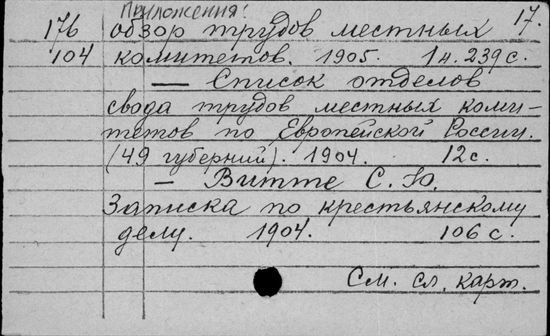 Приложения: 17.
176 обзор трудов местных
104 комитетов. 1905. 1 н. 239 с.
— Список отделов
свода трудов местных коми-
тетов по Европейской России.
(49 губерний). 1904. 12 с.
— Витте С. Ю.
Записка по крестьянскому
делу. 1904. 106 с.
См. сл. карт.